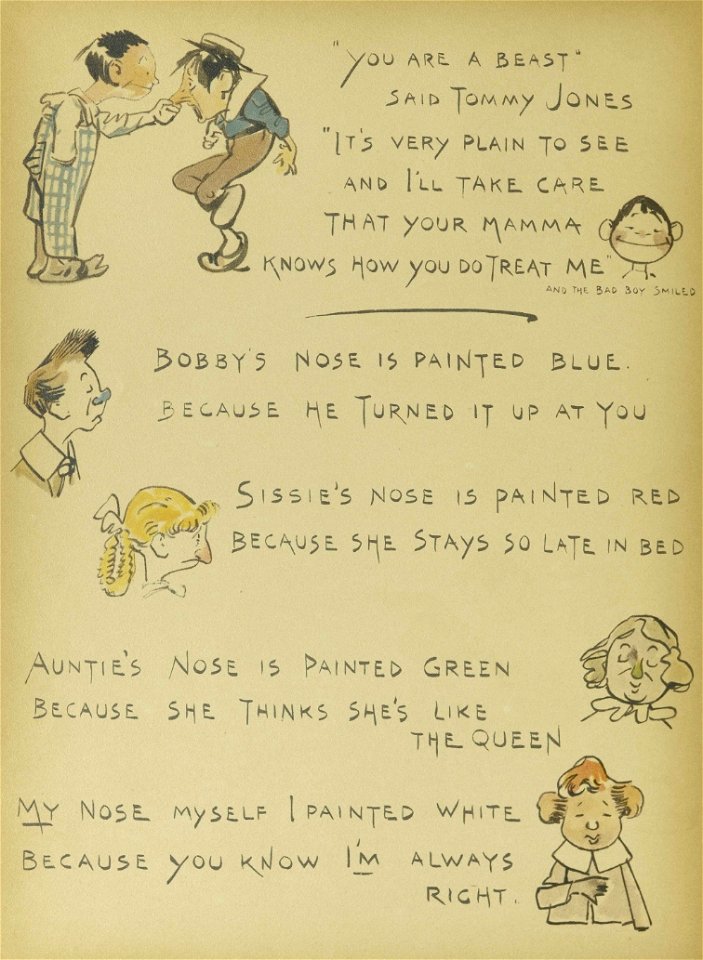 "YOU ARE A BEAST"
SAID TOMMY JONES
"IT'S VERY PLAIN TO SEE
AND I'LL TAKE CARE
THAT YOUR MAMMA
KNOWS HOW YOU DO TREAT ME"
AND THE BAD BOY SMILED
BOBBY'S NOSE IS PAINTED BLUE.
BECAUSE HE TURNED IT UP AT YOU
SISSIE'S NOSE IS PAINTED RED
BECAUSE SHE STAYS SO LATE IN BED
AUNTIE'S NOSE IS PAINTED GREEN
BECAUSE SHE THINKS SHE'S LIKE
THE QUEEN
MY NOSE MYSELF I PAINTED WHITE
BECAUSE YOU KNOW I'M ALWAYS
RIGHT.